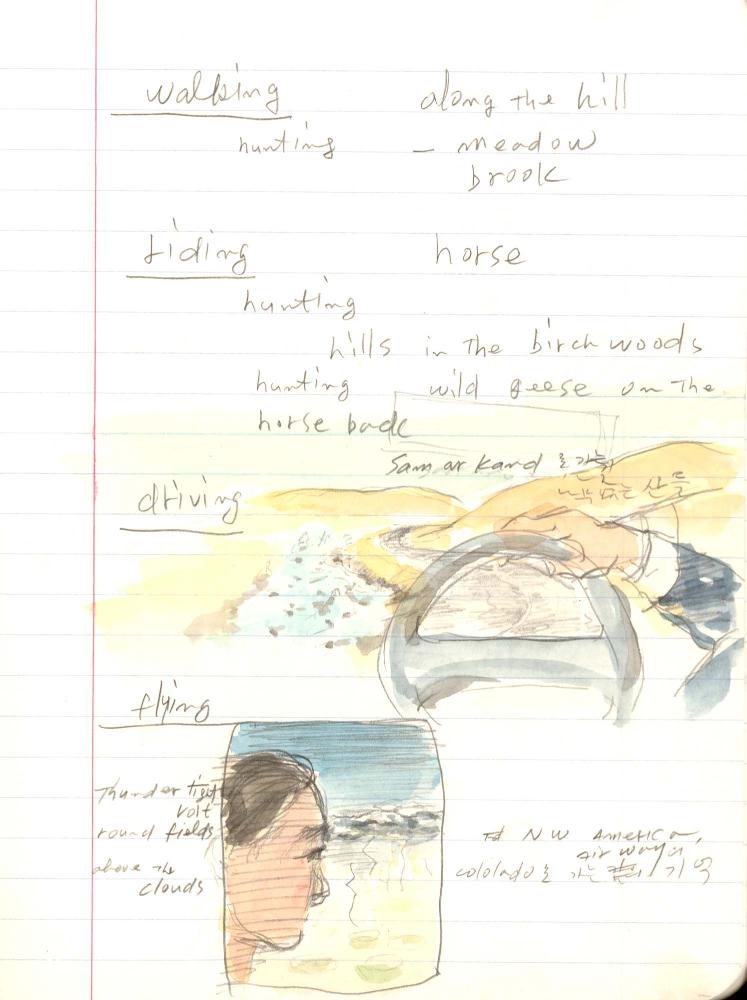 walking along the hill
hunting – meadow
brook
riding horse
hunting
hills in the birch woods
hunting wild geese on the
horse back
Samarkand로 가는
산들
driving
flying
Thunder
volt
round fields
above the
clouds
NW America,
Air way의
cololado로 가는 기억